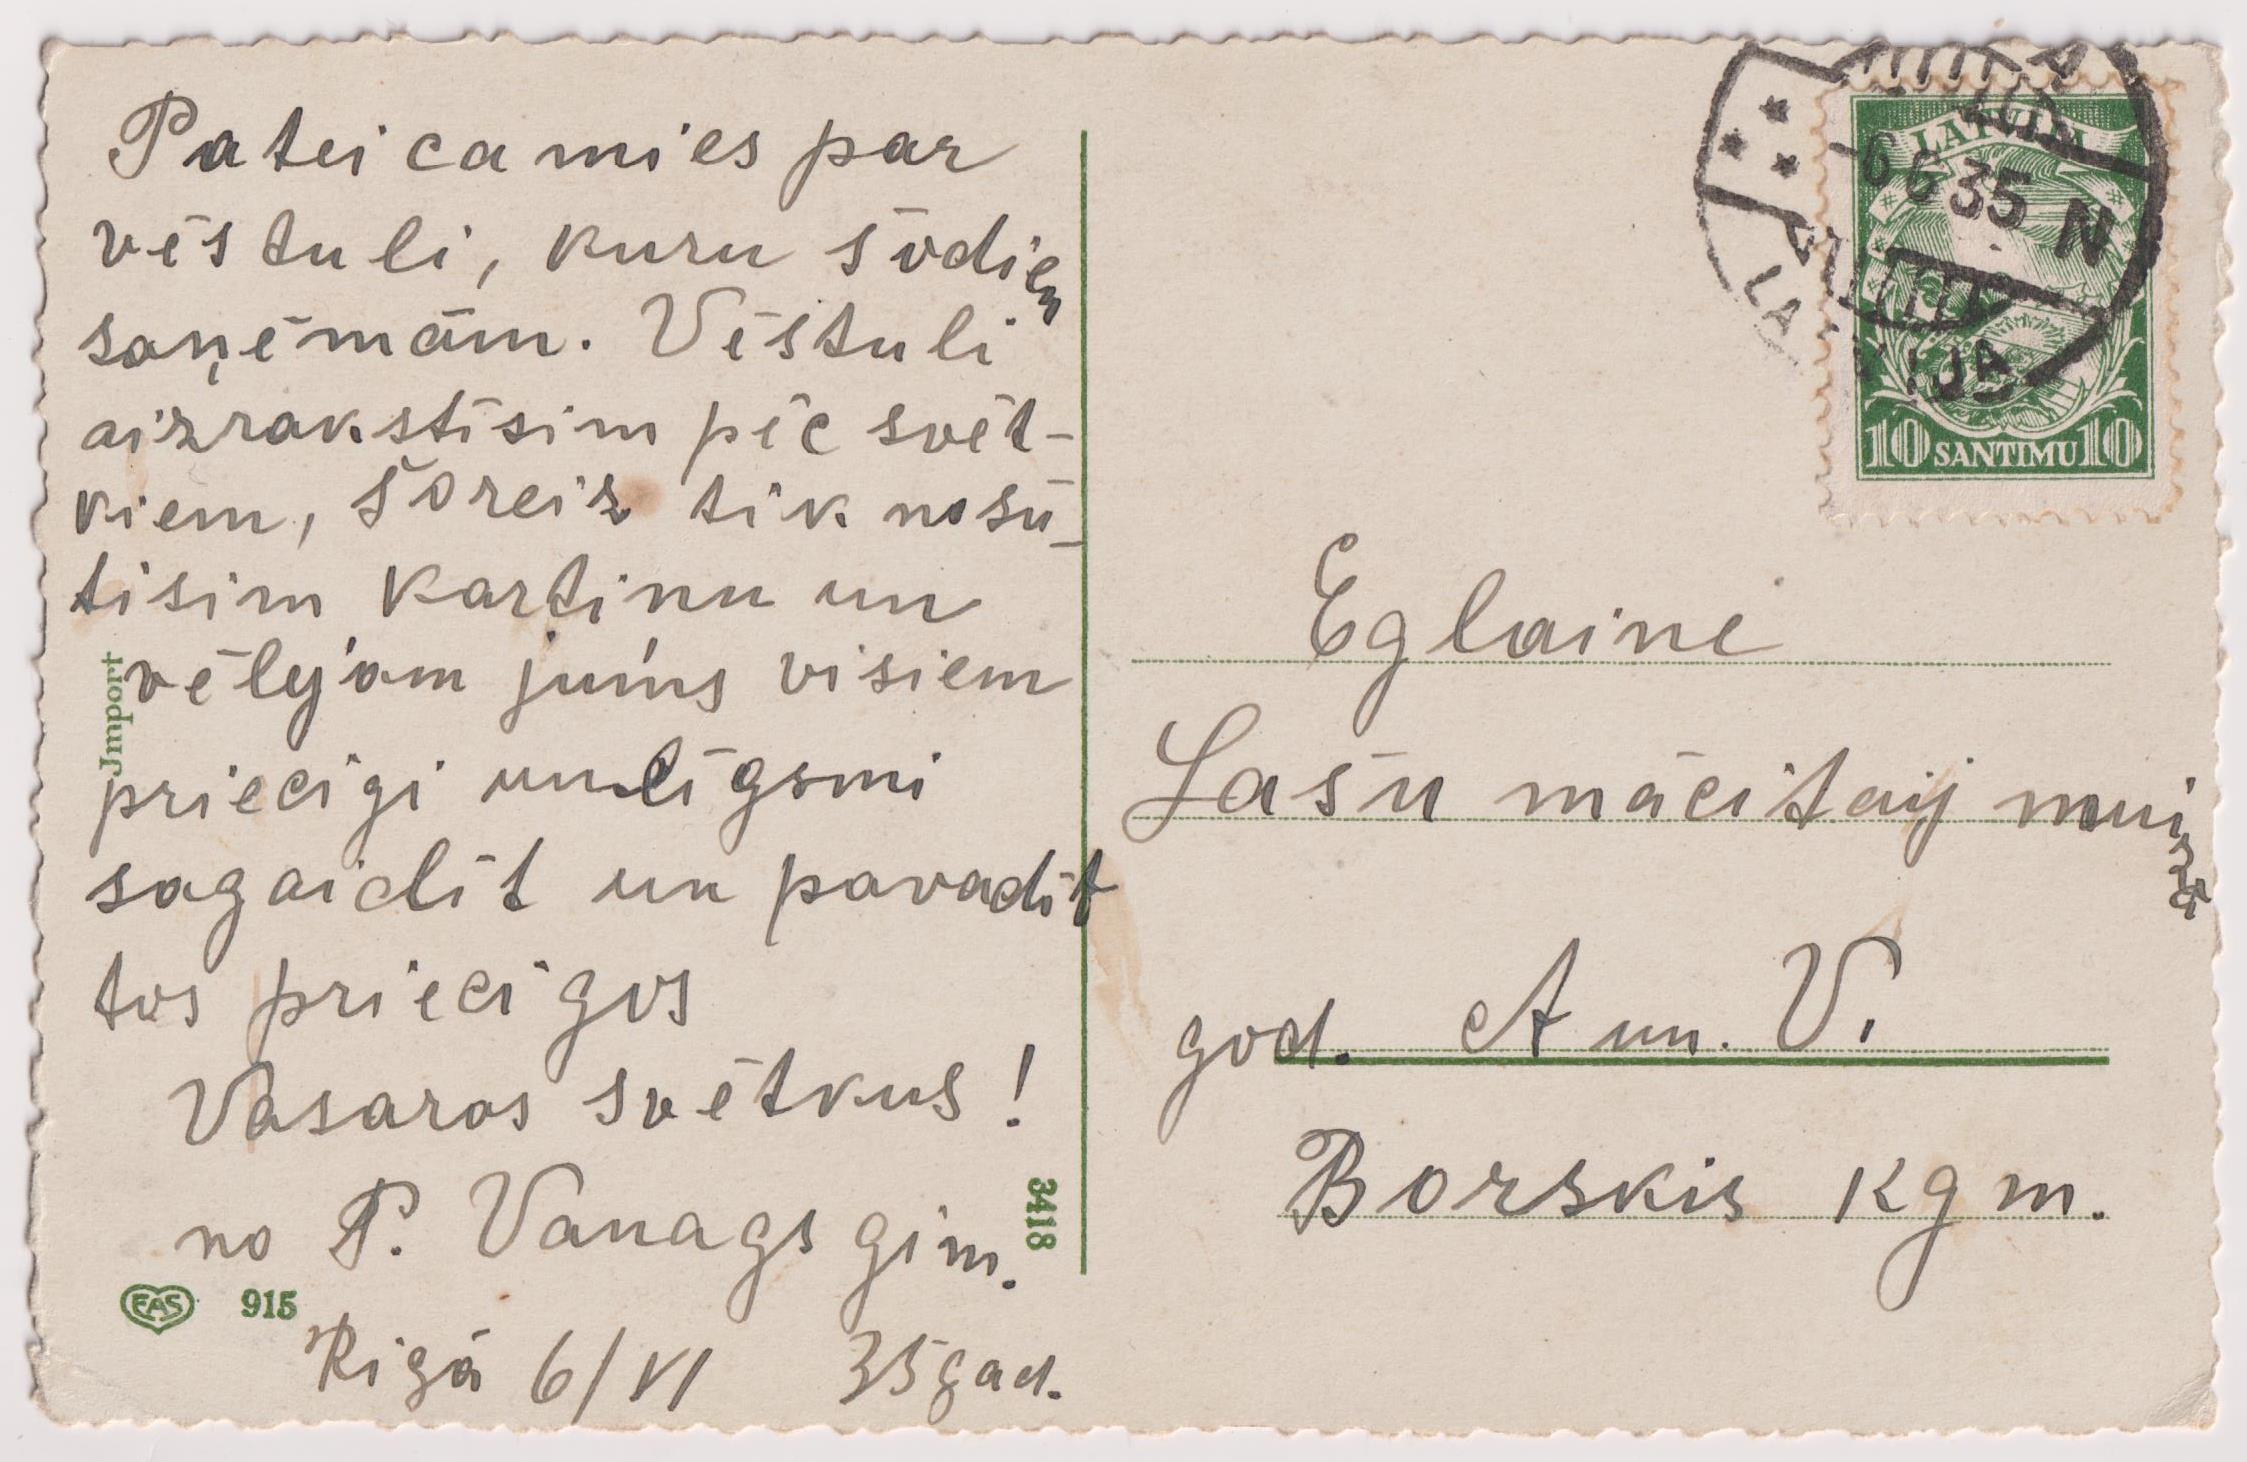 Pateicamies par
vēstuli, kuru šodien
saņēmām. Vēstuli
aizrakstīsim pēc svēt-
kiem, šoreiz tik nosū-
tisim kartinu un
vēlējam jums visiem
priecīgi un līgsmi
sagaidīt un pavadīt
tos priecīgos
Vasaras svētkus!
no P. Vanags gim.
Rigā 6/VI 35 gad.
Import
EAS 915
3418
LATVIJA
6 6 35 N
LATVIJA
10 SANTIMU 10
Eglainē
Lašu mācitaij muižā
god. A un. V.
Borskis kgm.